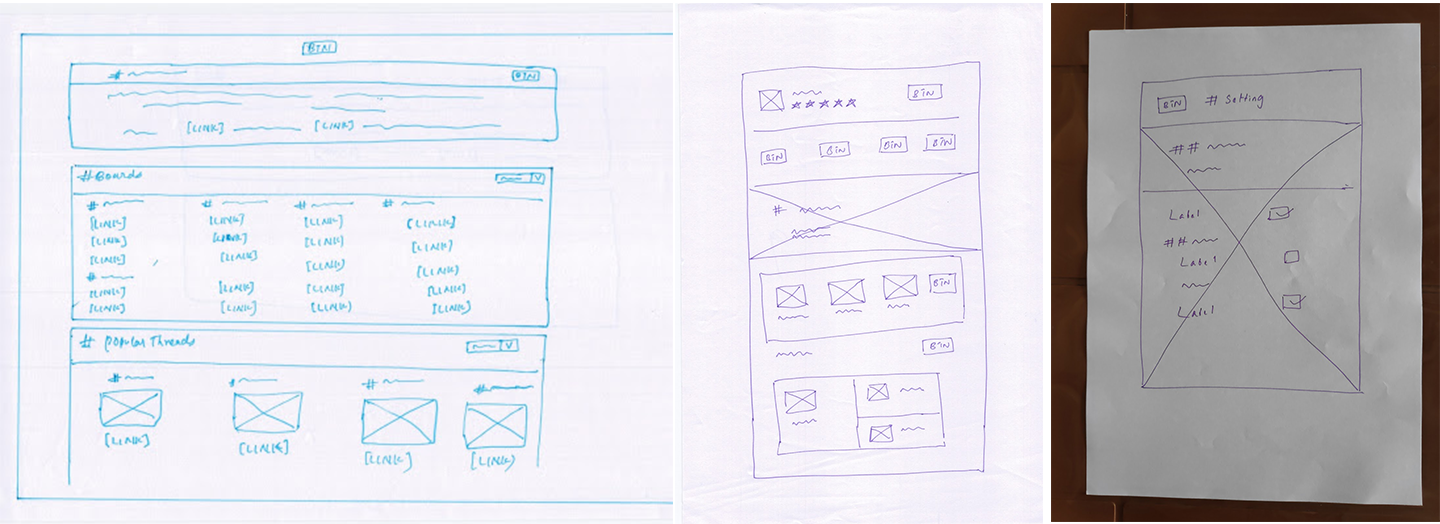 BtN
#
BtN
[LINK] [LINK]
# Boards
V
# # # #
[LINK] [LINK] [LINK] [LINK]
[LINK] [LINK] [LINK] [LINK]
[LINK] [LINK] [LINK] [LINK]
#
[LINK] [LINK] [LINK] [LINK]
[LINK] [LINK] [LINK] [LINK]
# Popular Threads
V
# # # #
[LINK] [LINK] [LINK] [LINK]
BtN
BtN BtN BtN BtN
#
BtN
BtN
BtN # Setting
##
Label
##
Label
Label